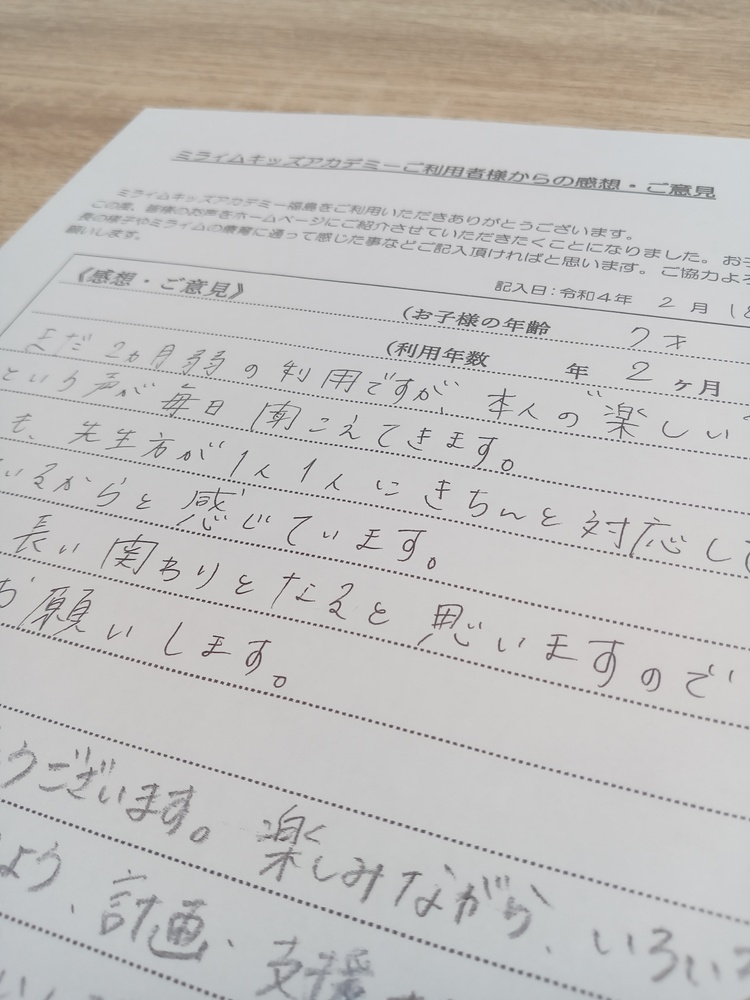 ミライムキッズアカデミーご利用者様からの感想・ご意見
ミライムキッズアカデミー福島をご利用いただきありがとうございます。
この度、皆様のお声をホームページにご紹介させていただきたくことになりました。お子
長の様子やミライムの療育に通って感じた事などご記入頂ければと思います。ご協力よろ
願いします。
記入日：令和4年 2月
《感想・ご意見》
(お子様の年齢 7才
(利用年数 年 2 ヶ月
まだ2ヵ月弱の利用ですが、本人の"楽しい
という声が毎日聞こえてきます。
も、先生方が1人1人にきちんと対応して
いるからと感じています。
長い関わりとなると思いますので
お願いします。
うございます。楽しみながら、いろいろ
よう、計画、支援